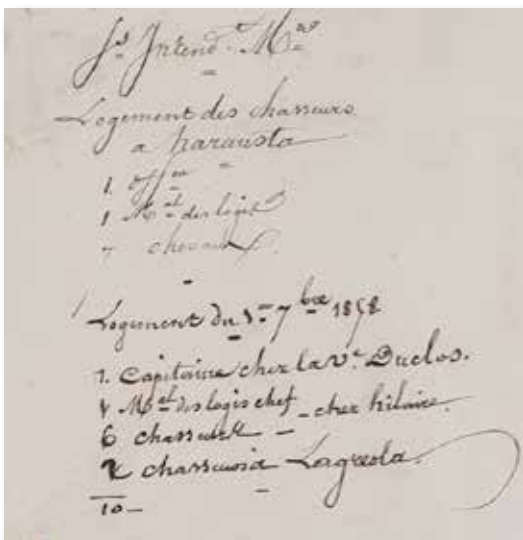 Intend.t M.re
Logement des chasseurs
a parausta
1. off.er
1 M.al des logis
7 chevaux.
Logement du 1.er 7bre 1858
1. Capitaine chez la V.e Duclos.
1 M.al des logis chef - chez hilaire.
6 chasseurs -
2 chasseurs à Lagreola.
10 -